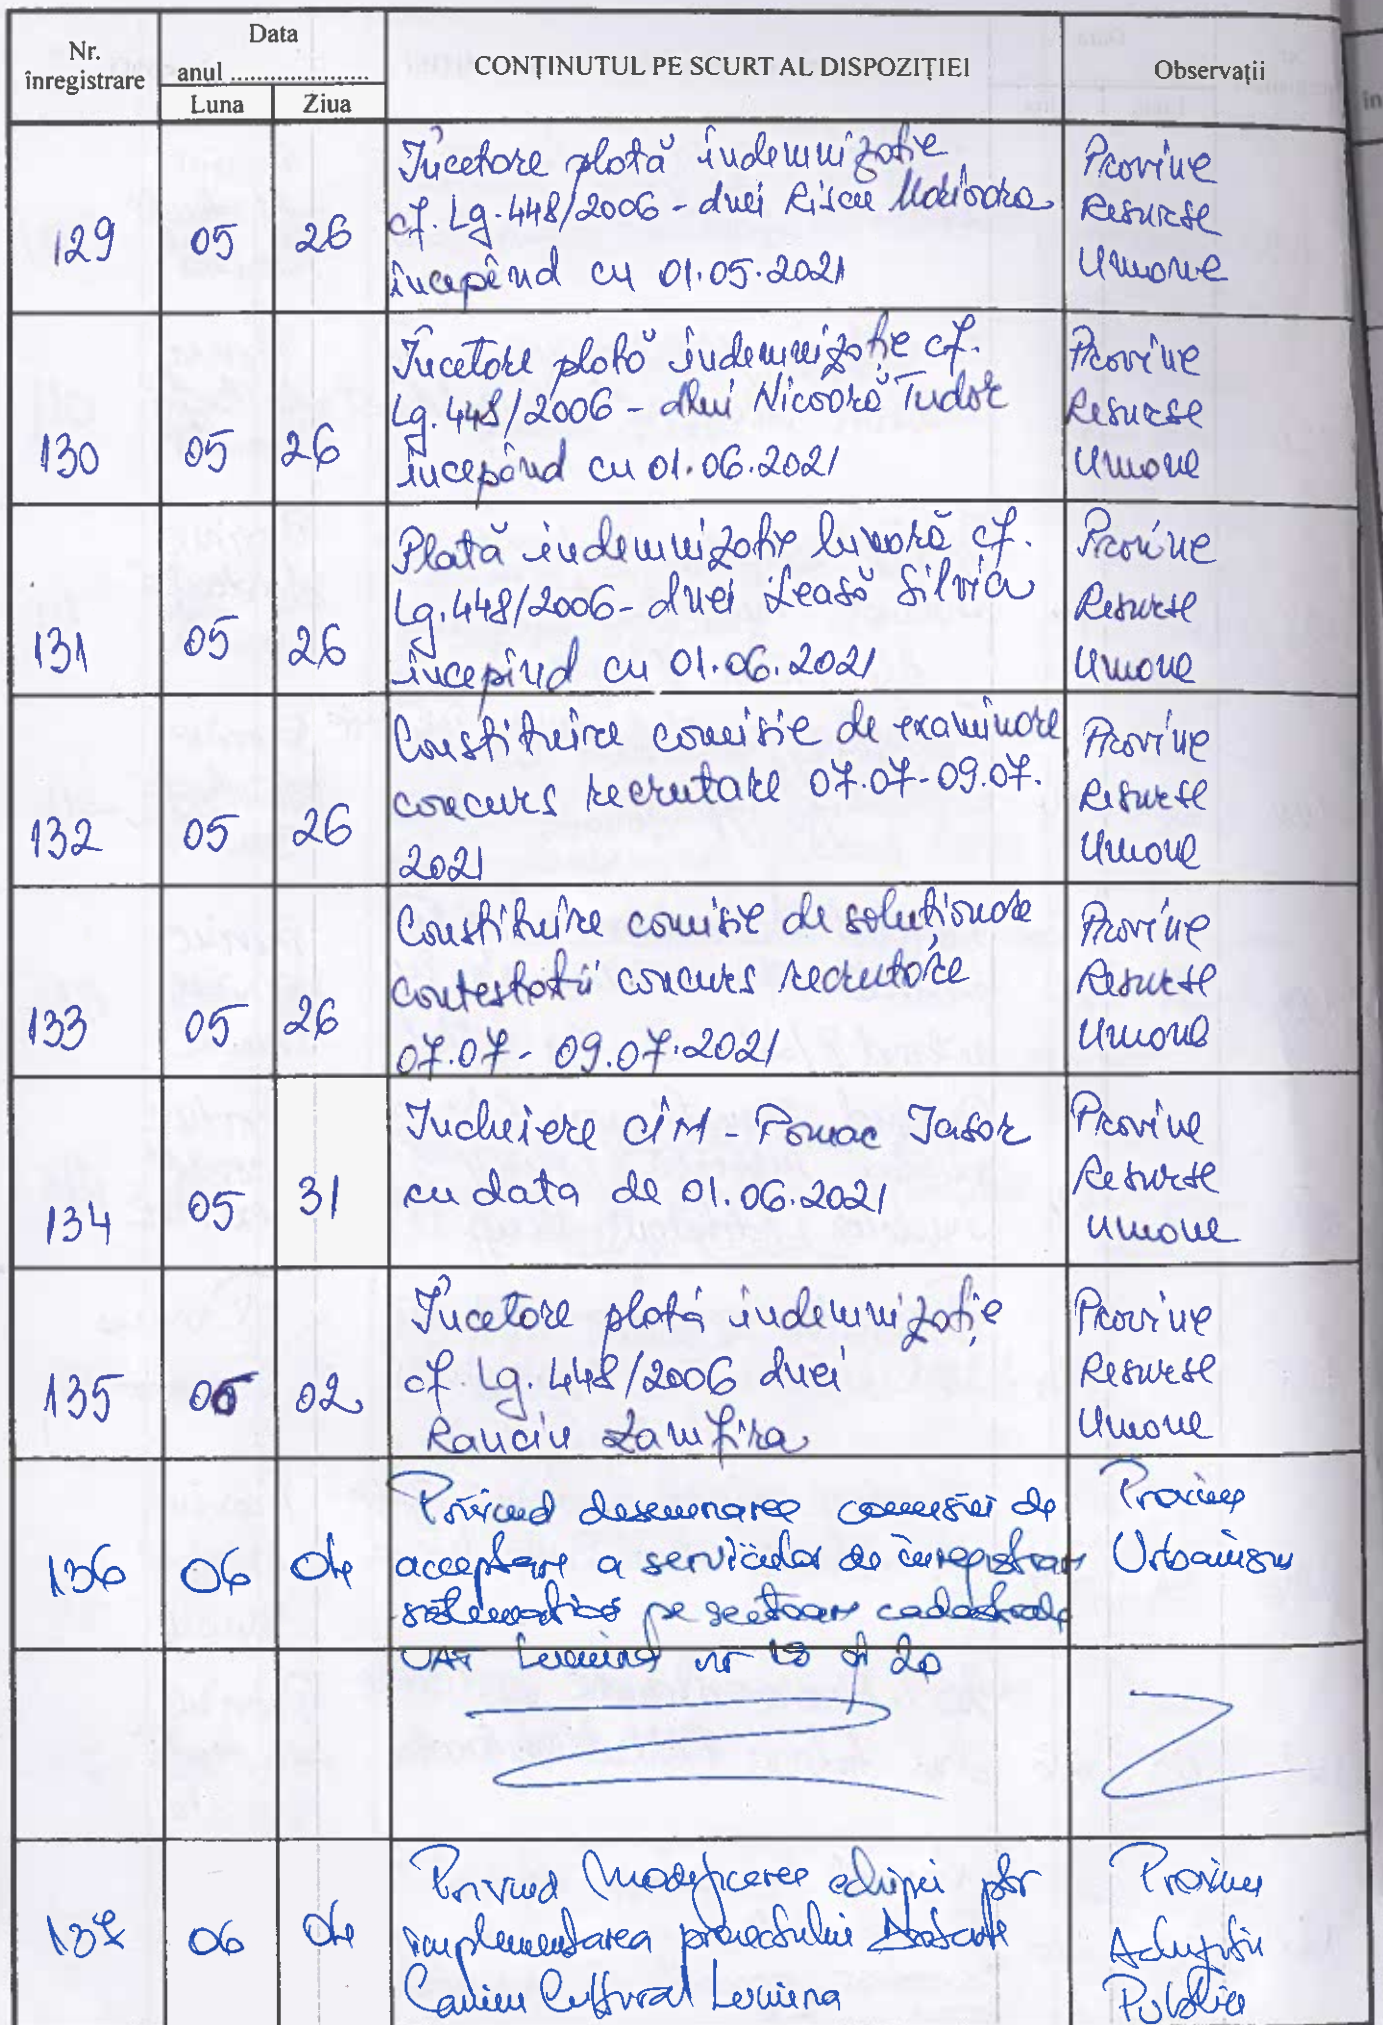 Nr. înregistrare
Data
anul ....................
Luna
Ziua
CONȚINUTUL PE SCURT AL DISPOZIȚIEI
Observații
129 05 26
Încetare plată indemnizație
cf. Lg. 448/2006 - dnei Riscu Marioara
începînd cu 01.05.2021
Provine
Resurse
Umane
130 05 26
Încetare plată indemnizație cf.
Lg. 448/2006 - dlui Nicoară Tudor
începând cu 01.06.2021
Provine
Resurse
Umane
131 05 26
Plată indemnizație lunară cf.
Lg. 448/2006 - dnei Leasă Silvia
începînd cu 01.06.2021
Provine
Resurse
Umane
132 05 26
Constituire comisie de examinare
concurs recrutare 07.07-09.07.
2021
Provine
Resurse
Umane
133 05 26
Constituire comisie de soluționare
contestații concurs recrutare
07.07 - 09.07.2021
Provine
Resurse
Umane
134 05 31
Incheiere CIM - Fornac
cu data de 01.06.2021
Provine
Resurse
Umane
135 06 02
Încetare plată indemnizație
cf. Lg. 448/2006 dnei
Ranciu Zamfira
Provine
Resurse
Umane
136 06 04
Privind desemnarea comisiei de
acceptare a serviciilor de înregistrare
sistematică pe sectoare cadastrale
UAT nr 13 și 20
Provine
Urbanism
137 06 04
Privind modificarea echipei ptr
implementarea proiectului
Camin Cultural
Provine
Achiziții
Publice